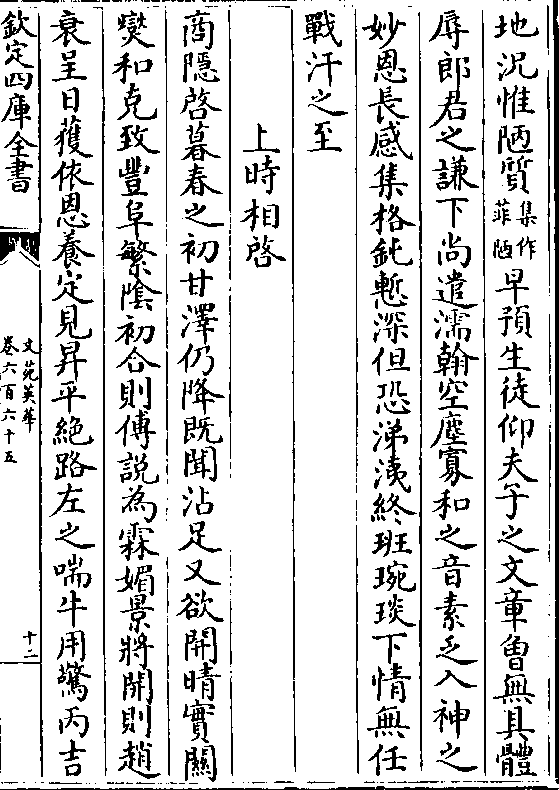 地況惟陋質集作菲陋早預生徒仰夫子之文章曾無具體
辱郎君之謙下尚遣濡翰空塵寡和之音素乏入神之
妙恩長感集格鈍慙深但恐涕洟終班琬琰下情無任
戰汗之至
上時相啓
商隱啓暮春之初甘澤仍降既聞沾足又欲開晴實關
燮和克致豐阜繁陰初合則傅說為霖媚景將開則趙
衰呈日獲依恩養定見昇平絶路左之喘牛用驚丙吉
欽定四庫全書
文苑英華
卷六百六十五
十二